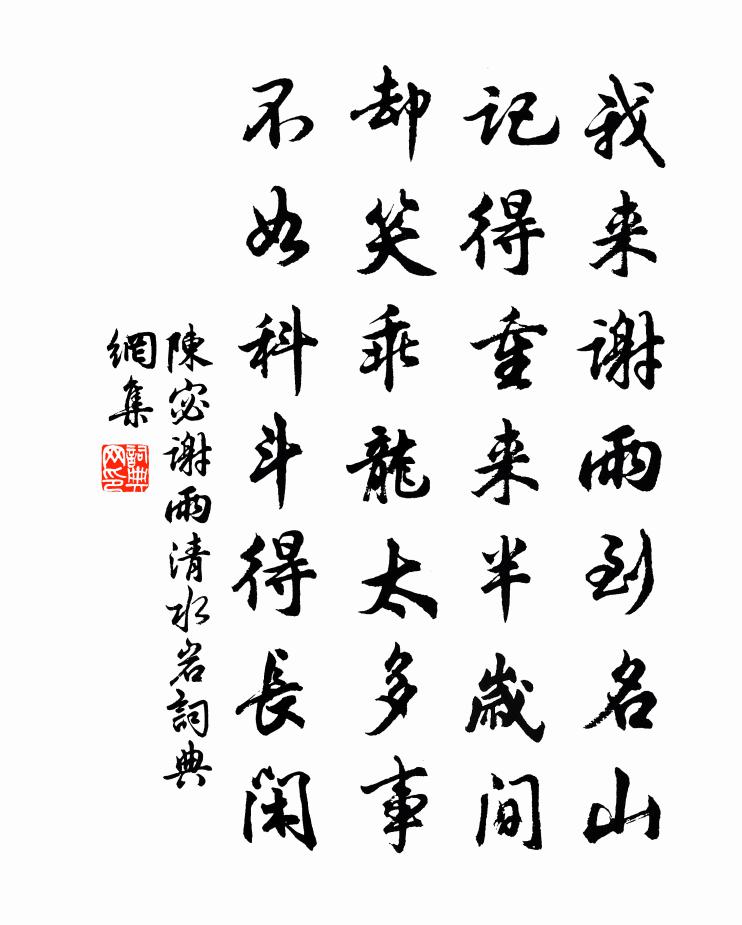 我来謝雨到名山
記得重来半歲間
却笑乖龍太多事
不如科斗得長閑
陳宓謝雨清水岩詞典
網集
詞典
网印